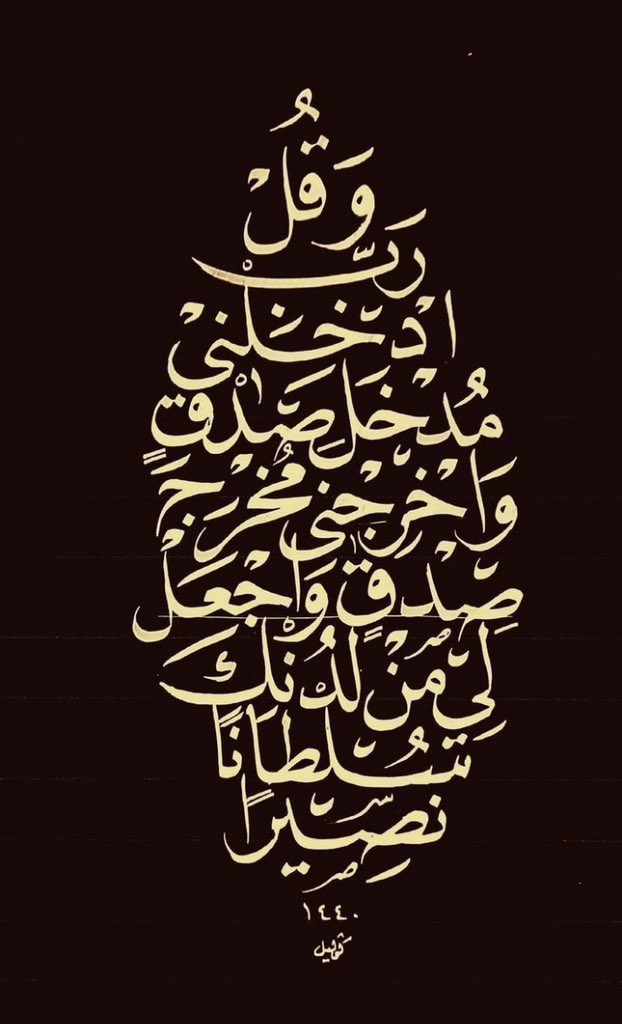 وَقُلْ
رَبِّ
ادْخَلنيْ
مُدْخَلَ صِدْقٍ
وَاَخْرِجْنى مُخْرَجَ
صِدْقٍ وَاجْعَلْ
لِيّ مِنْ لَدُنْكَ
سُلْطَانًا
نَصِيْرًا
١٤٤٠